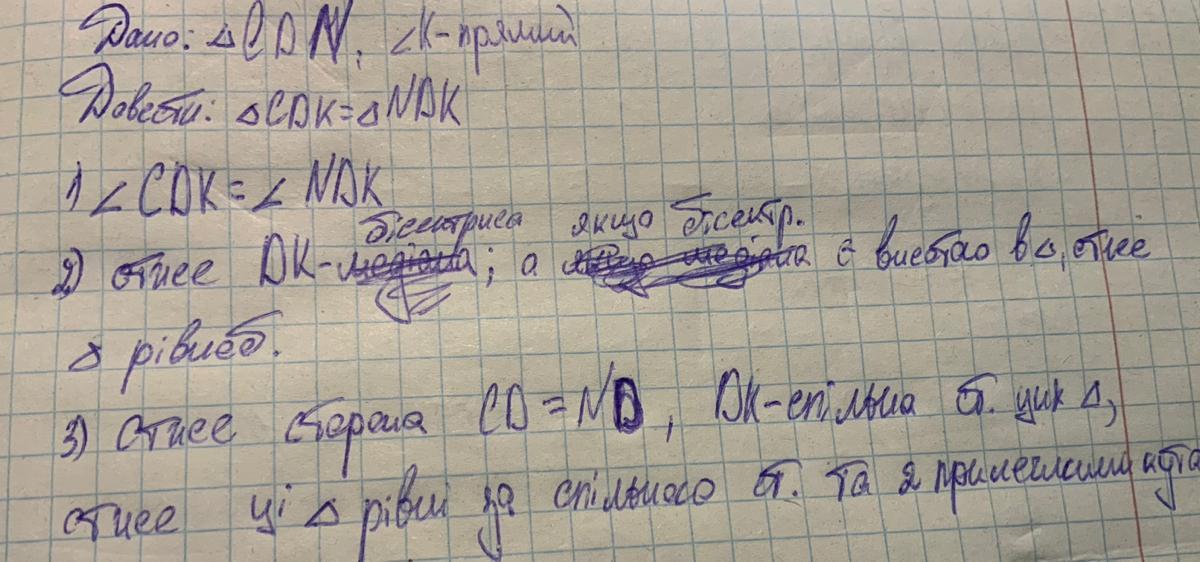 Дано: △CDN, ∠K-прямий
Довести: △CDK=△NDK
1) ∠CDK=∠NDK
бісектриса якщо бісектр.
2) отже DK-медіана; а якщо медіана є висотою в △, отже
△ рівноб.
3) Отже сторона CD=ND, DK-спільна ст. цих △,
отже ці △ рівні за спільною ст. та 2 прилеглими кута